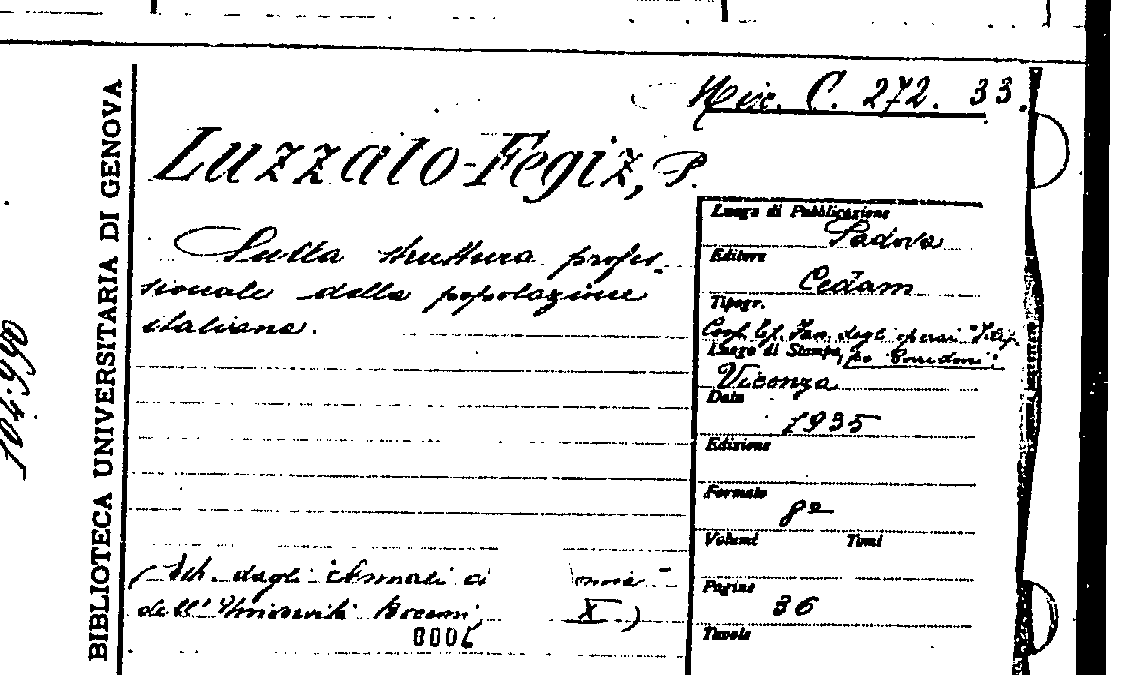 Misc. C. 272. 33.
Luzzato-Fegiz, P.
Sulla struttura profes-
sionale della popolazione
italiana.
(Estr. dagli "Annali di
dell'Università Bocconi,
X)
BIBLIOTECA UNIVERSITARIA DI GENOVA
104.990
Luogo di Pubblicazione
Padova
Editore
Cedam
Tipogr.
Coop. Tip. degli operai "Filip-
Luogo di Stampa po Corridoni"
Vicenza
Data
1935
Edizione
Formato
8º
Volumi Tomi
Pagine
36
Tavole